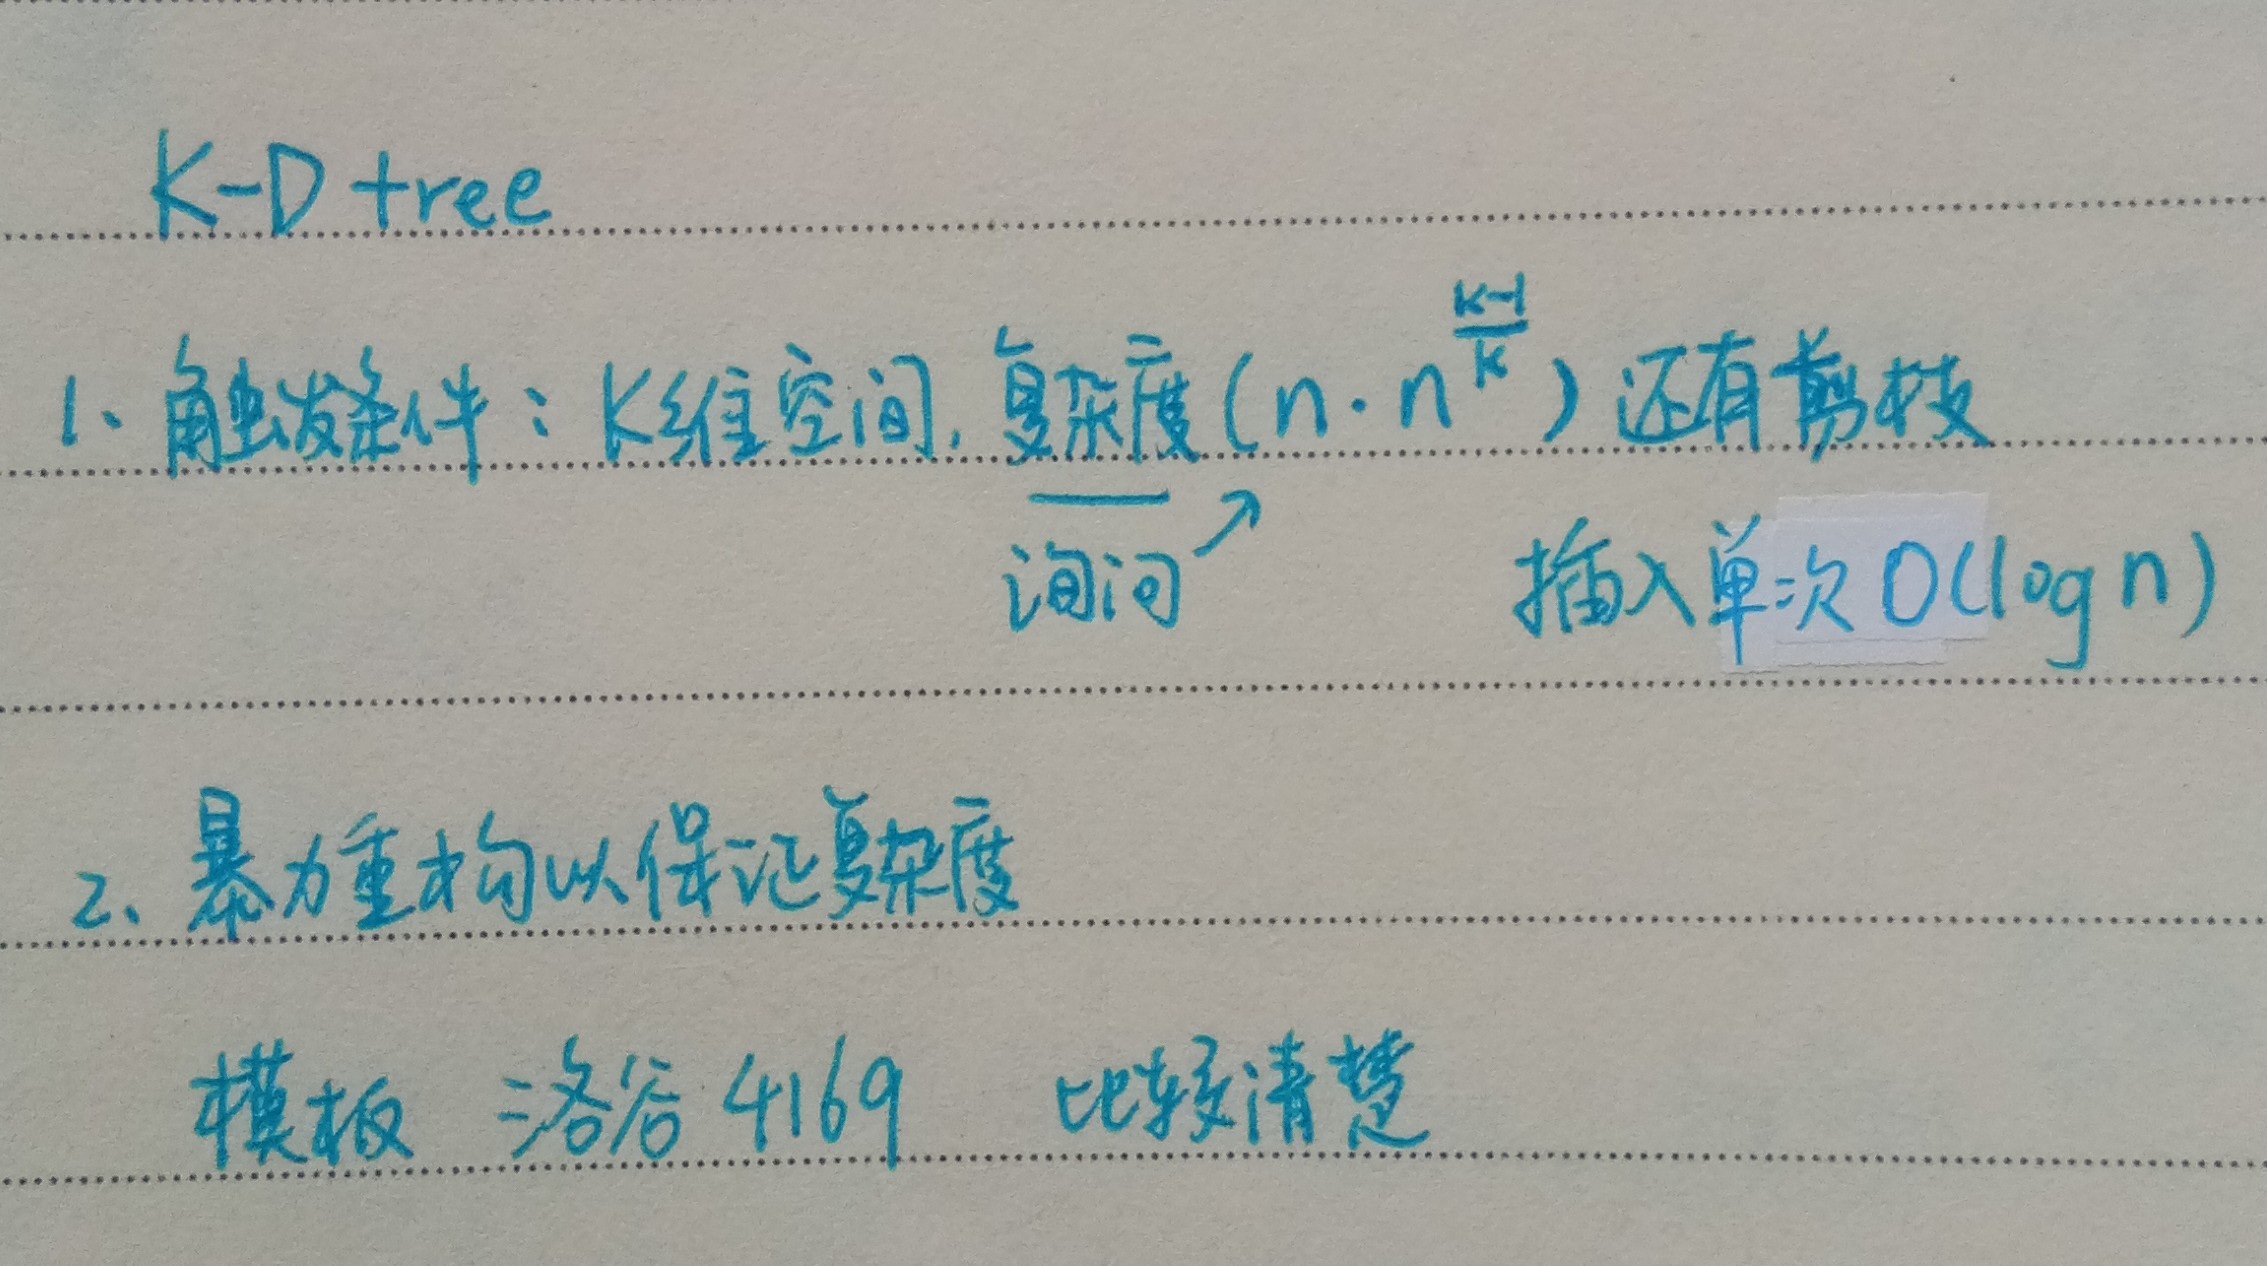 K-D tree
1、触发条件：K维空间，复杂度(n·n^{\frac{K-1}{K}}) 还有剪枝
询问↗ 插入单次O(log n)
2、暴力重构以保证复杂度
模板 洛谷4169 比较清楚